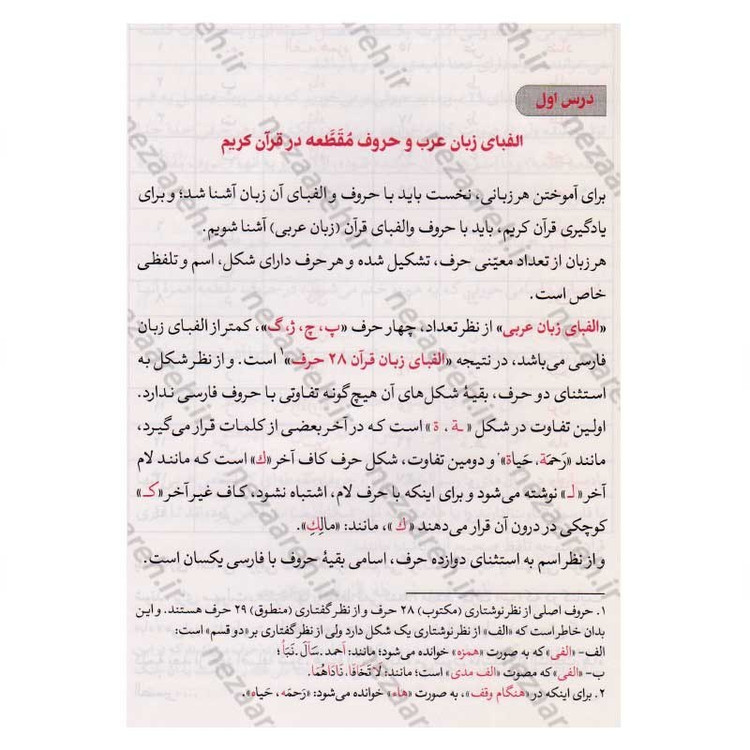 درس اول
الفبای زبان عرب و حروف مُقَطَّعه در قرآن کریم
برای آموختن هر زبانی، نخست باید با حروف و الفبای آن زبان آشنا شد؛ و برای
یادگیری قرآن کریم، باید با حروف والفبای قرآن (زبان عربی) آشنا شویم.
هر زبان از تعداد معیّنی حرف، تشکیل شده و هر حرف دارای شکل، اسم و تلفظی
خاص است.
«الفبای زبان عربی» از نظر تعداد، چهار حرف «پ، چ، ژ، گ»، کمتر از الفبای زبان
فارسی می‌باشد، در نتیجه «الفبای زبان قرآن ۲۸ حرف»۱ است. و از نظر شکل به
استثنای دو حرف، بقیهٔ شکل‌های آن هیچ‌گونه تفاوتی با حروف فارسی ندارد.
اولین تفاوت در شکل «ـة . ة» است که در آخر بعضی از کلمات قرار می‌گیرد،
مانند «رَحمَة، حَیاة»۲ و دومین تفاوت، شکل حرف کاف آخر «ك» است که مانند لام
آخر «لـ» نوشته می‌شود و برای اینکه با حرف لام، اشتباه نشود، کاف غیر آخر «کـ»
کوچکی در درون آن قرار می‌دهند «ك»، مانند: «مالِكِ».
و از نظر اسم به استثنای دوازده حرف، اسامی بقیهٔ حروف با فارسی یکسان است.
۱. حروف اصلی از نظر نوشتاری (مکتوب) ۲۸ حرف و از نظر گفتاری (منطوق) ۲۹ حرف هستند. و این
بدان خاطر است که «الف» از نظر نوشتاری یک شکل دارد ولی از نظر گفتاری بر «دو قسم» است:
الف- «الفی» که به صورت «همزه» خوانده می‌شود؛ مانند: أحمد ـ سَأَلَ ـ نَبَأ ؛
ب- «الفی» که مصوت «الف مدی» است؛ مانند: لا تَخافا، ناداهُما.
۲. برای اینکه در «هنگام وقف»، به صورت «هاء» خوانده می‌شود: «رَحمَه، حَیاه».
nezaareh.ir